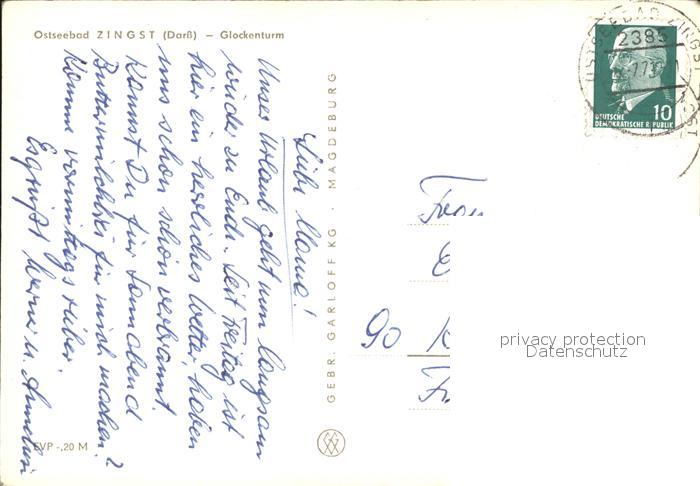 Ostseebad ZINGST (Darß) – Glockenturm
Liebe Mama!
Unser Urlaub geht nun langsam
wieder zu Ende. Seit Freitag ist
hier ein herrliches Wetter, haben
uns schon schön verbrannt.
Kannst Du für Sonnabend
Buttermilchbrei für mich machen?
Komme vormittags rüber.
Es grüßt Werner u. Annelies
EVP -,20 M
GEBR. GARLOFF KG · MAGDEBURG
OSTSEEBAD ZINGST
2385
10
DEUTSCHE
DEMOKRATISCHE REPUBLIK
Frau
90 K
privacy protection
Datenschutz